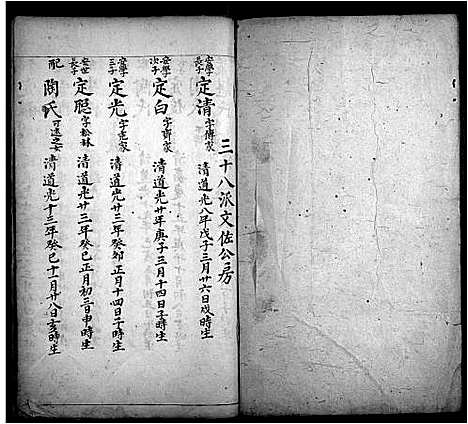 三十八派文佐公房
安學長子 定清 字傳家 清道光八年戊子三月廿六日戌時生
安學次子 定白 字齊家 清道光廿年庚子三月十四日子時生
安學三子 定光 字克家 清道光廿三年癸卯正月十四日子時生
安世長子 定聰 字松林 清道光十三年癸巳正月初三日申時生
配 陶氏 可遠之女 清道光十三年癸巳十一月廿八日亥時生